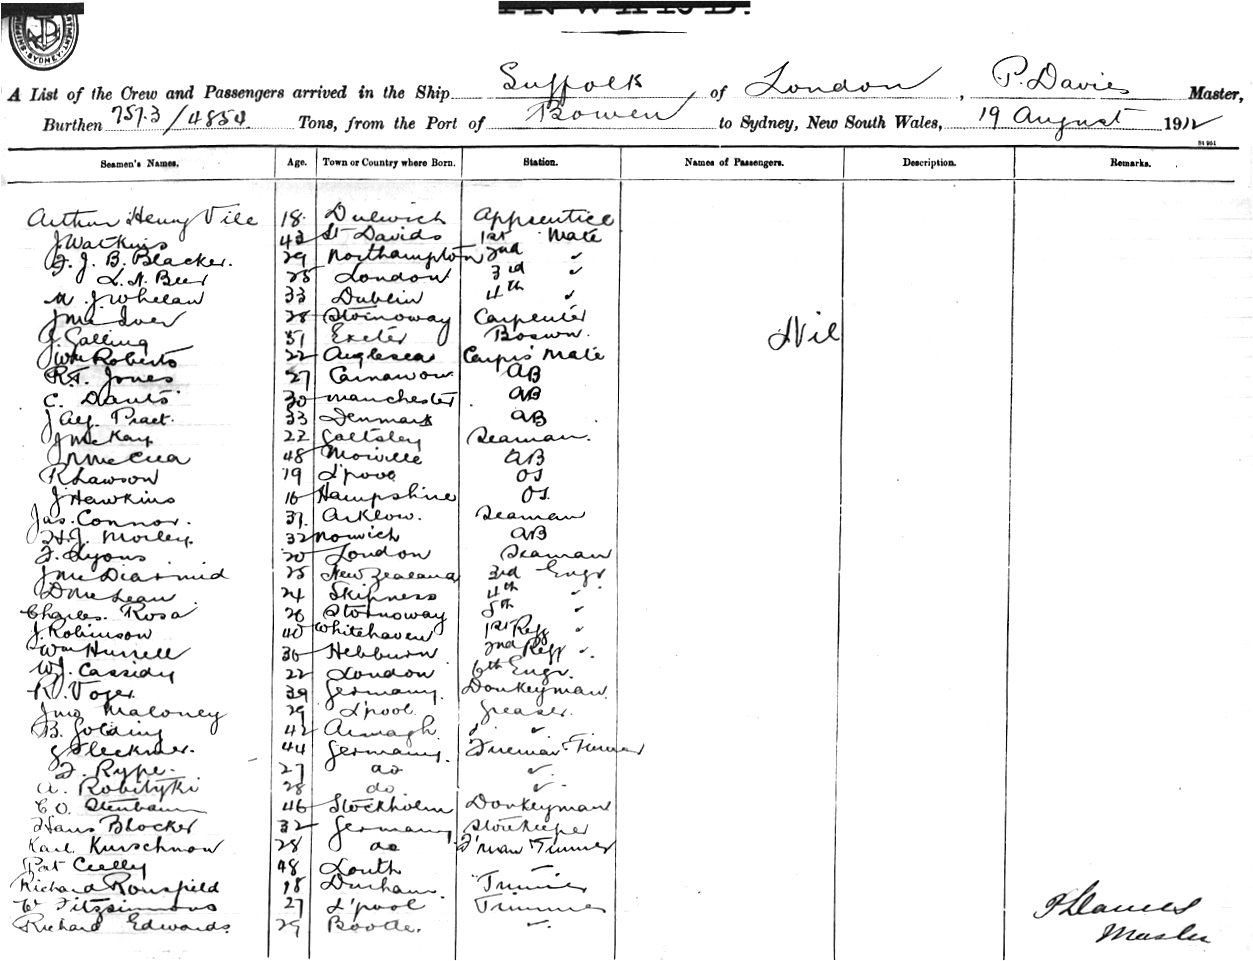 INWARD.
SHIPPING DEPARTMENT SYDNEY
A List of the Crew and Passengers arrived in the Ship Suffolk of London, P. Davies Master,
Burthen 7573/4854 Tons, from the Port of Bowen to Sydney, New South Wales, 19 August 1912
Seamen's Names. Age. Town or Country where Born. Station. Names of Passengers. Description. Remarks.
Arthur Henry Vile 18 Dulwich Apprentice
J Watkins 43 St Davids 1st Mate
J. B. Blacker. 29 Northampton 2nd ✓
L. N. Beer 25 London 3rd ✓
M J. Whelan 33 Dublin 4th ✓
J McIver 28 Stornoway Carpenter
J. Galling 51 Exeter Boswn. Nil
Wm Roberts 22 Anglesea Carps Mate
R.T. Jones 27 Carnarvon AB
C. Davis 30 Manchester AB
J Alf. Praet. 33 Denmark AB
J McKay 22 Seaman.
48 Moville AB
R Lawson 19 L'pool OS
J Hawkins 16 Hampshire OS.
Jas. Connor. 37. Arklow. Seaman
H.J. Morley 32 Norwich AB
F. Lyons 20 London Seaman
J McDiarmid 25 New Zealand 3rd Engr
D McLean 24 Skipness 4th ✓
Charles Rosa 26 Stornoway 5th ✓
J. Robinson 40 Whitehaven 1st Refg ✓
Wm Hurrell 36 Hebburn 2nd Refg ✓
W.J. Cassidy 22 London 6th Engr.
R. Voger 39 Germany. Donkeyman.
Jno Maloney 29 L'pool. Greaser.
B. Golding 42 Armagh. ✓
Fleckner. 44 Germany. Fireman Trimmer
F. Rype. 27 do ✓
A. Robityki 28 do. ✓
C O. Stenbaum 46 Stockholm Donkeyman
Hans Blocker 32 Germany Storekeeper
Karl Kurschnow 28 do F'man Trimmer
Pat Cully 48 Louth
Richard Rousfield 18 Durham Trimmer
W Fitzsimmons 27 L'pool Trimmer
Richard Edwards. 29 Bootle. ✓
P Davies
Master